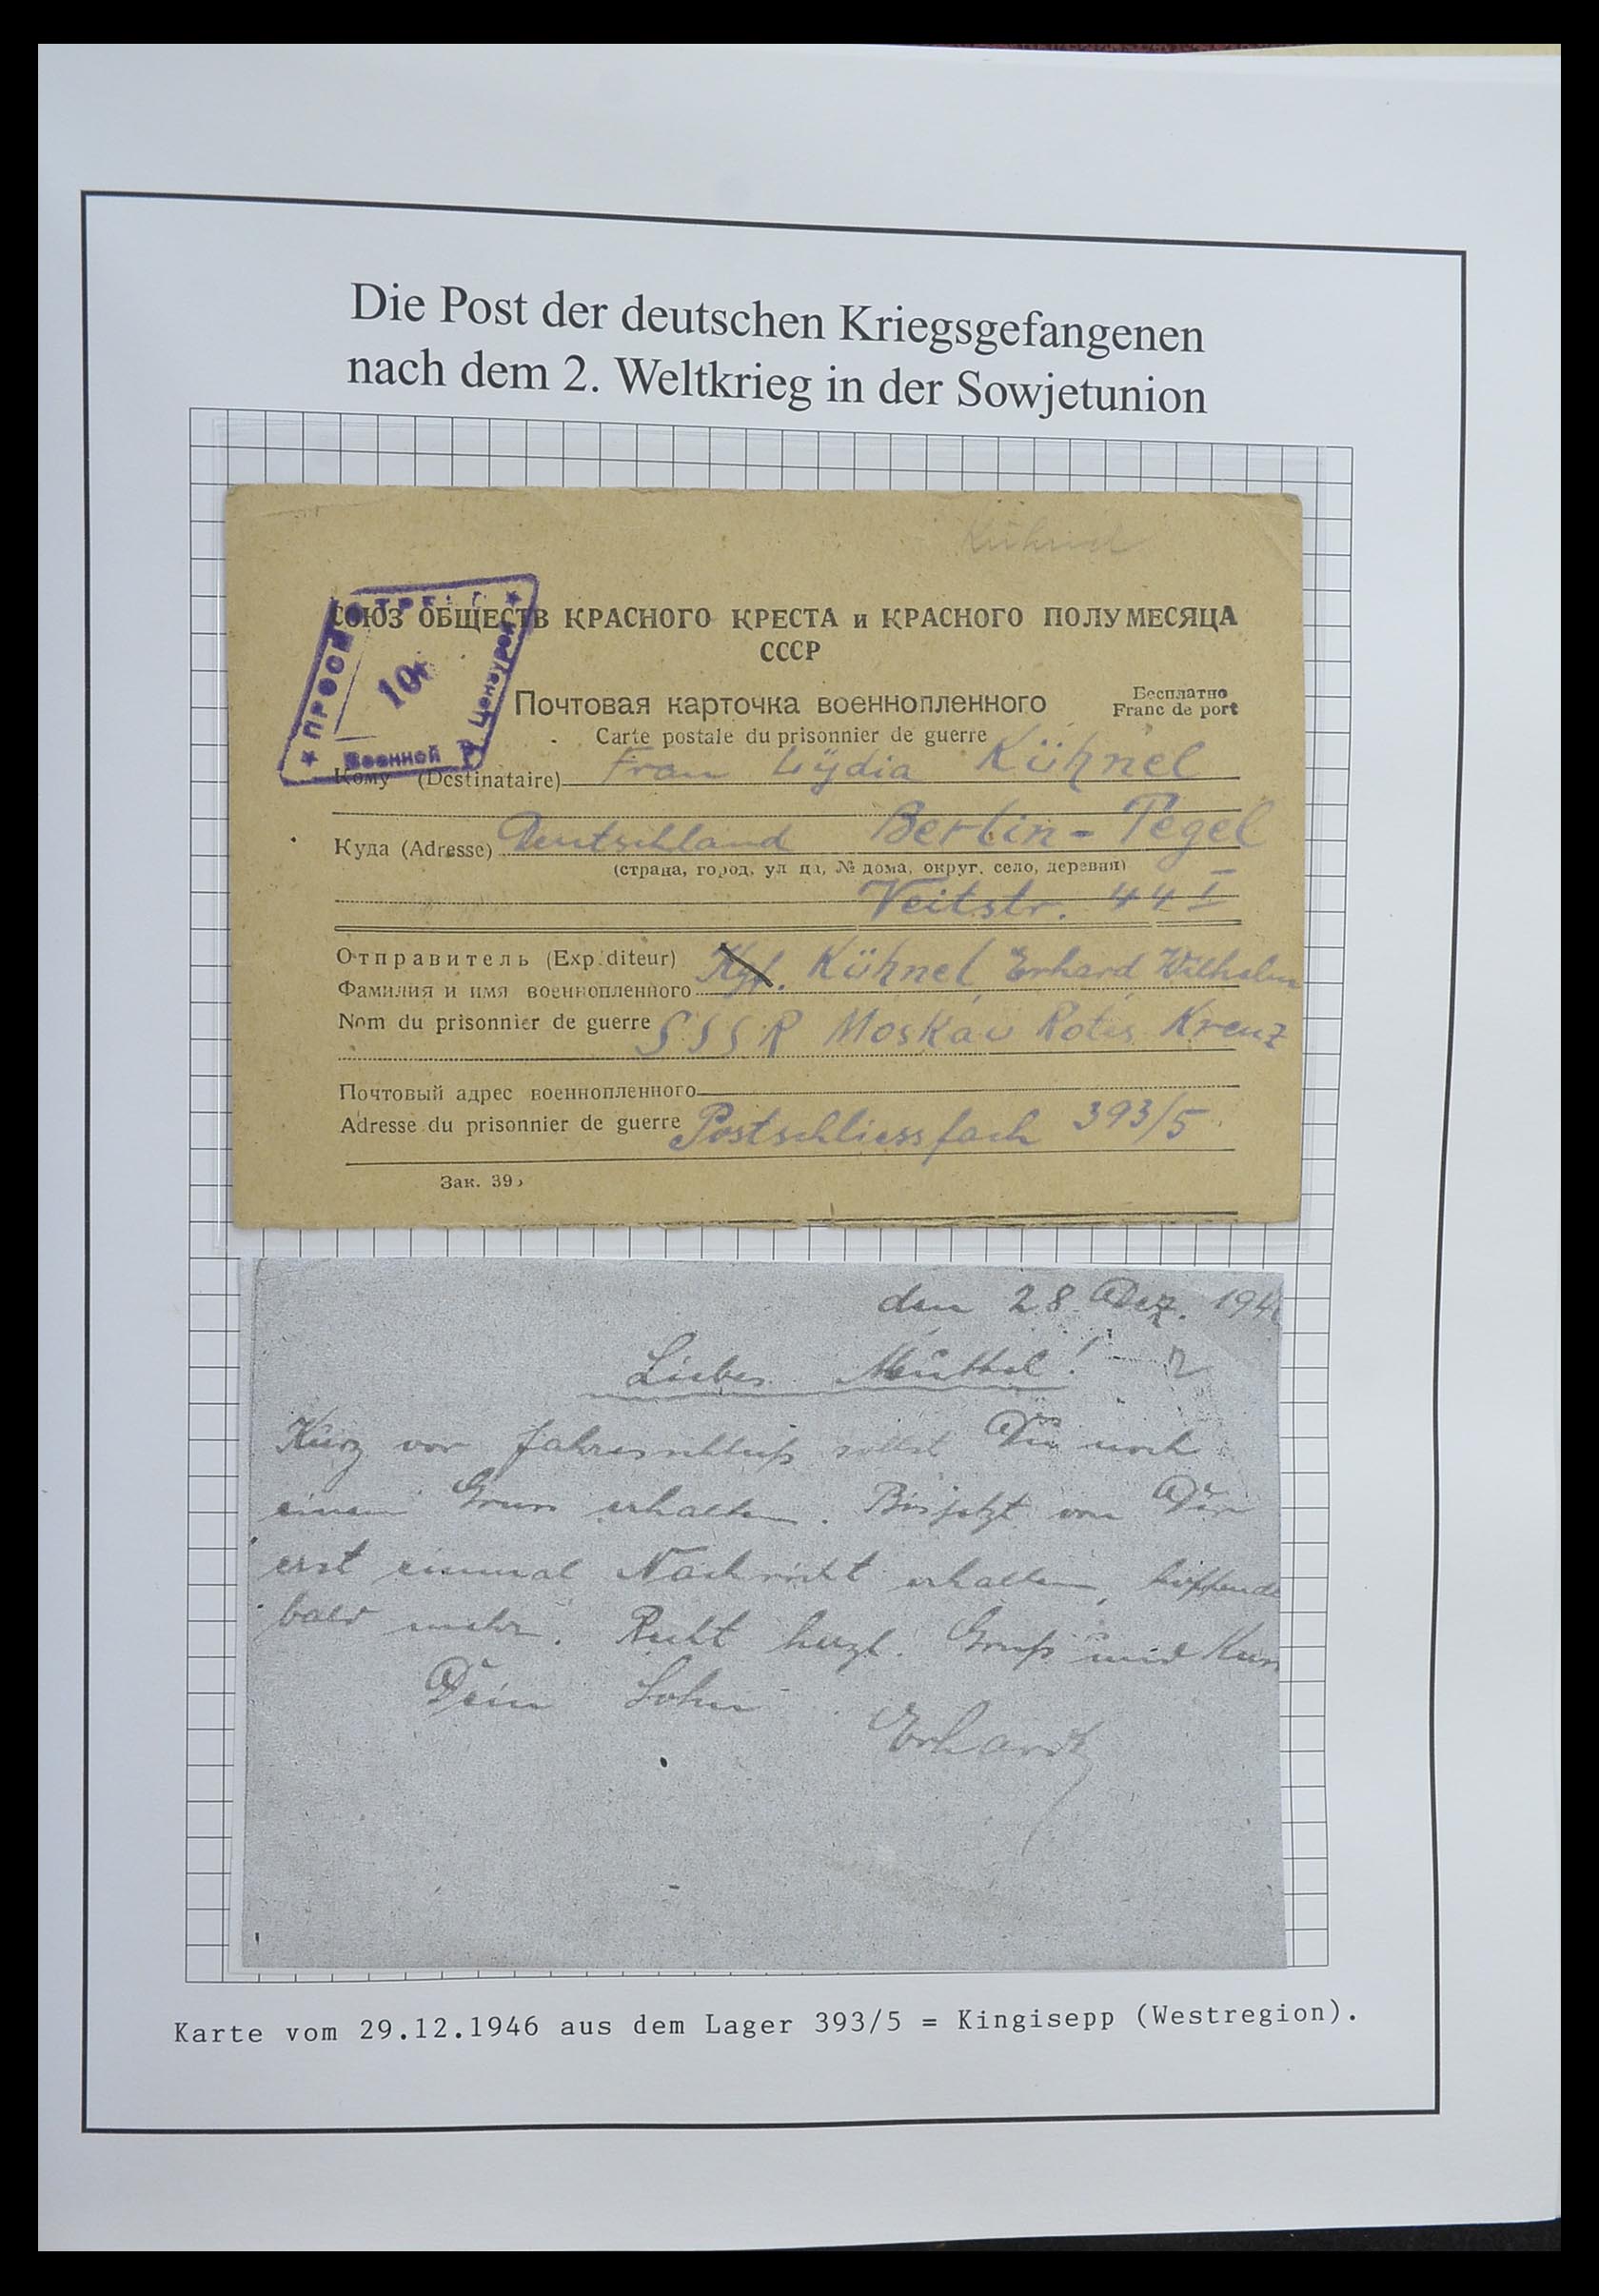 Die Post der deutschen Kriegsgefangenen
nach dem 2. Weltkrieg in der Sowjetunion
Kühnel
СОЮЗ ОБЩЕСТВ КРАСНОГО КРЕСТА и КРАСНОГО ПОЛУМЕСЯЦА
СССР
ПРОСМОТРЕНО
10
Военной Цензурой
Почтовая карточка военнопленного
Бесплатно
Franc de port
Carte postale du prisonnier de guerre
Кому (Destinataire) Frau Lydia Kühnel
Куда (Adresse) Deutschland Berlin-Tegel
(страна, город, ул ца, № дома, округ, село, деревня)
Veitstr. 44 I
Отправитель (Exp diteur)
Kgf. Kühnel, Erhard, Wilhelm
Фамилия и имя военнопленного
Nom du prisonnier de guerre SSSR Moskau Rotes Kreuz
Почтовый адрес военнопленного
Adresse du prisonnier de guerre Postschliessfach 393/5
Зак. 39
den 28. Dez. 194
Liebes Muttel!
Kurz vor Jahresschluß sollst Du noch
einen Gruss erhalten. Bis jetzt von Dir
erst einmal Nachricht erhalten, hoffende
bald mehr. Recht herzl. Gruß und Kuss
Dein Sohn
Erhard
Karte vom 29.12.1946 aus dem Lager 393/5 = Kingisepp (Westregion).